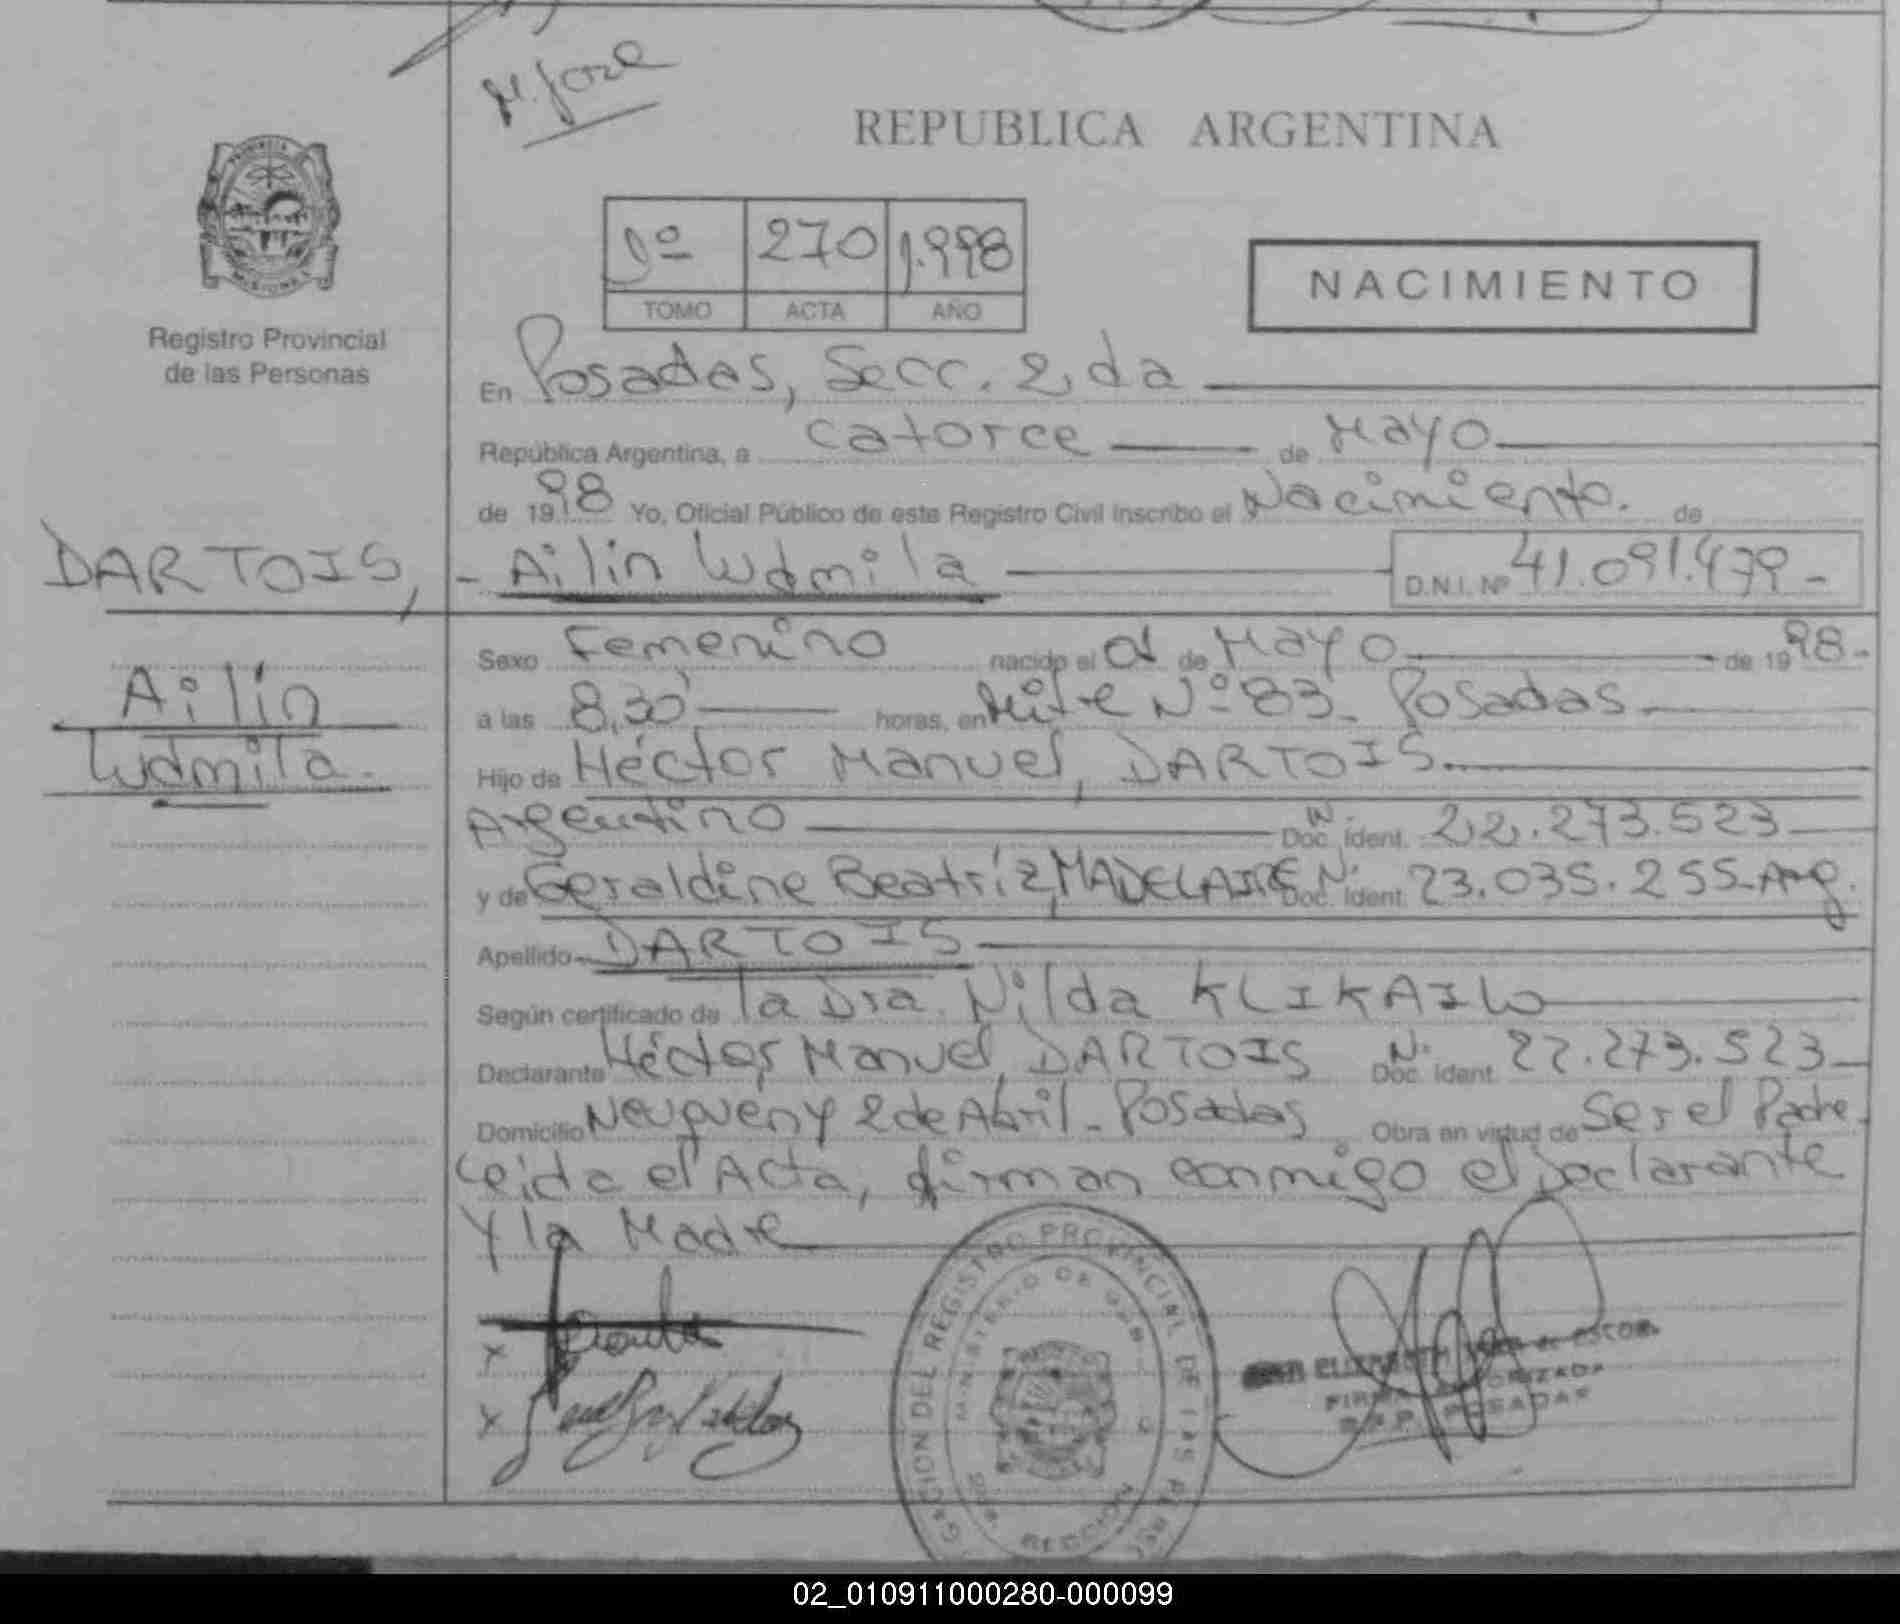 M. Jose
REPUBLICA ARGENTINA
PROVINCIA
MISIONES
Registro Provincial
de las Personas
1º 270 1.998
TOMO ACTA AÑO
NACIMIENTO
En Posadas, Secc. 2da
República Argentina, a catorce de Mayo
de 1998 Yo, Oficial Público de este Registro Civil inscribo el Nacimiento. de
DARTOIS, - Ailin Ludmila D.N.I. Nº 41.091.479-
Ailín
Ludmila.
Sexo Femenino nacido el 01 de Mayo de 1998.
a las 8,30 horas, en Mitre Nº 83 Posadas
Hijo de Héctor Manuel, DARTOIS
Argentino N. Doc. Ident. 22.273.523
y de Geraldine Beatríz, MADELAIRE N. Doc. Ident. 23.035.255-Arg.
Apellido DARTOIS
Según certificado de la Dra. Nilda KLIKAILO
Declarante Héctor Manuel, DARTOIS N. Doc. Ident. 22.273.523
Domicilio Neuquén y 2 de Abril - Posadas Obra en virtud de Ser el Padre.
Leida el Acta, firman conmigo el Declarante
y la Madre
X
X
REGISTRO PROVINCIAL DE LAS
MINISTERIO DE GOB
SECCION
ELIZABETH de ESCOB
FIRMA AUTORIZADA
R.P.P. POSADAS
02_010911000280-000099